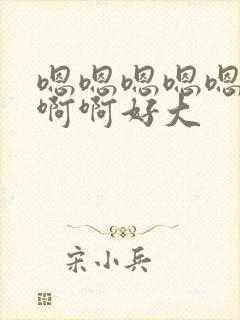 嗯嗯嗯嗯嗯
啊啊好大
宋小兵